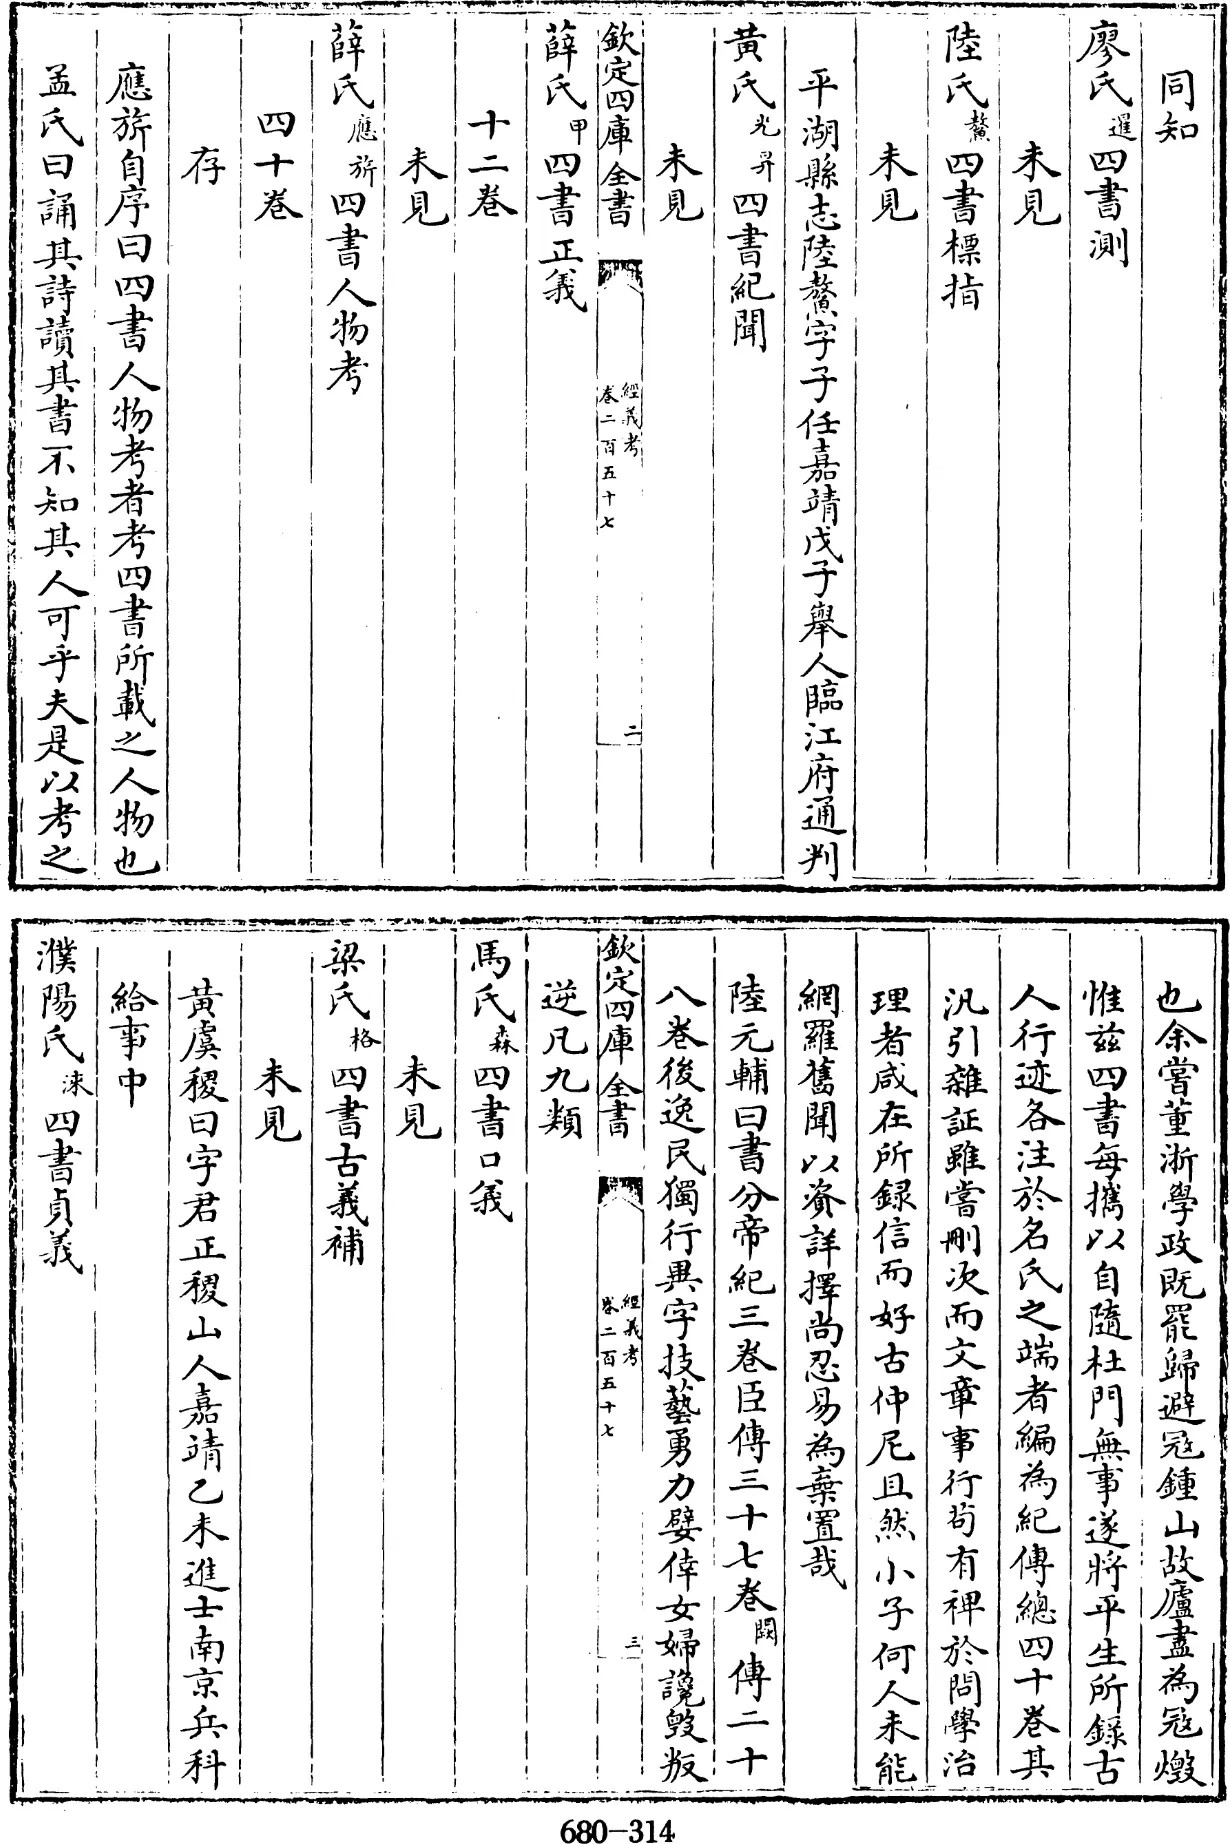 同知
廖氏暹四書測
未見
陸氏鰲四書標指
未見
平湖縣志陸鰲字子任嘉靖戊子舉人臨江府通判
黃氏光昇四書紀聞
未見
欽定四庫全書
經義考
卷二百五十七
二
薛氏甲四書正義
十二卷
未見
薛氏應旂四書人物考
四十卷
存
應旂自序曰四書人物考者考四書所載之人物也
孟氏曰誦其詩讀其書不知其人可乎夫是以考之
也余嘗董浙學政既罷歸避冦鍾山故廬盡為冦燬
惟兹四書每攜以自隨杜門無事遂將平生所錄古
人行迹各注於名氏之端者編為紀傳總四十卷其
汎引雜証雖嘗刪次而文章事行茍有禆於問學治
理者咸在所録信而好古仲尼且然小子何人未能
網羅舊聞以資詳擇尚忍易為棄置哉
陸元輔曰書分帝紀三卷臣傳三十七卷闕傳二十
八卷後逸民獨行異字技藝勇力嬖倖女婦讒毀叛
欽定四庫全書
經義考
卷二百五十七
三
逆凡九類
馬氏森四書口義
未見
梁氏格四書古義補
未見
黃虞稷曰字君正稷山人嘉靖乙未進士南京兵科
給事中
濮陽氏淶四書貞義
680-314